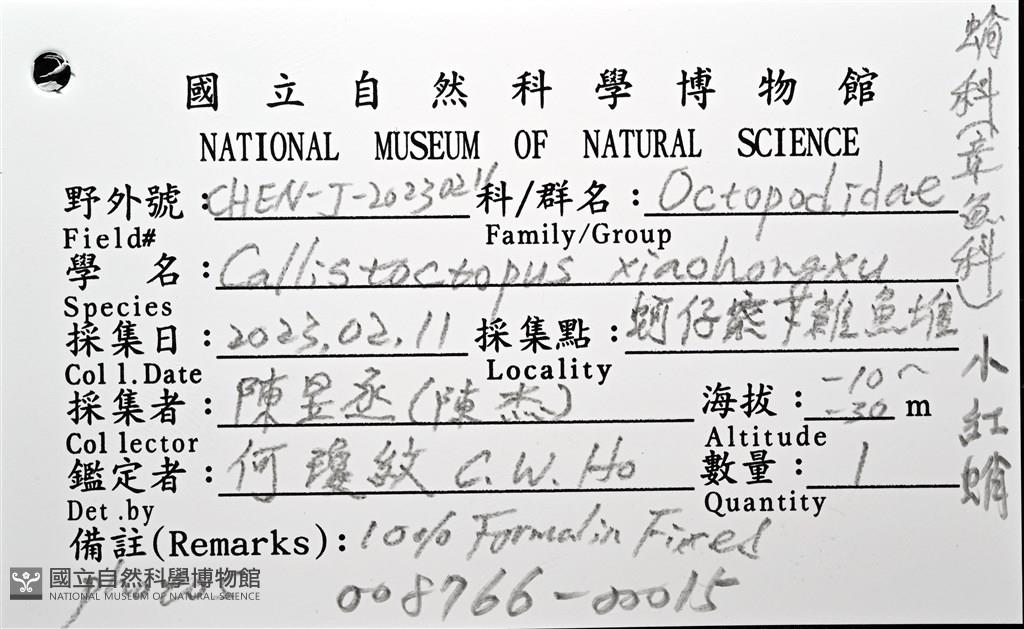 國立自然科學博物館
NATIONAL MUSEUM OF NATURAL SCIENCE
野外號：CHEN-J-20230211 科/群名：Octopodidae
Field# Family/Group
學 名：Callistoctopus xiaohongxu
Species
採集日：2023.02.11 採集點：蚵仔寮下雜魚堆
Coll.Date Locality
採集者：陳昱丞(陳杰) 海拔：-10~-30 m
Collector Altitude
鑑定者：何瓊紋 C.W.Ho 數量：1
Det.by Quantity
備註(Remarks)：10% Formalin Fixed
008766-00015
蛸科(章魚科) 小紅蛸
國立自然科學博物館
NATIONAL MUSEUM OF NATURAL SCIENCE